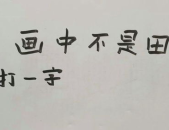 画中不是田
打一字